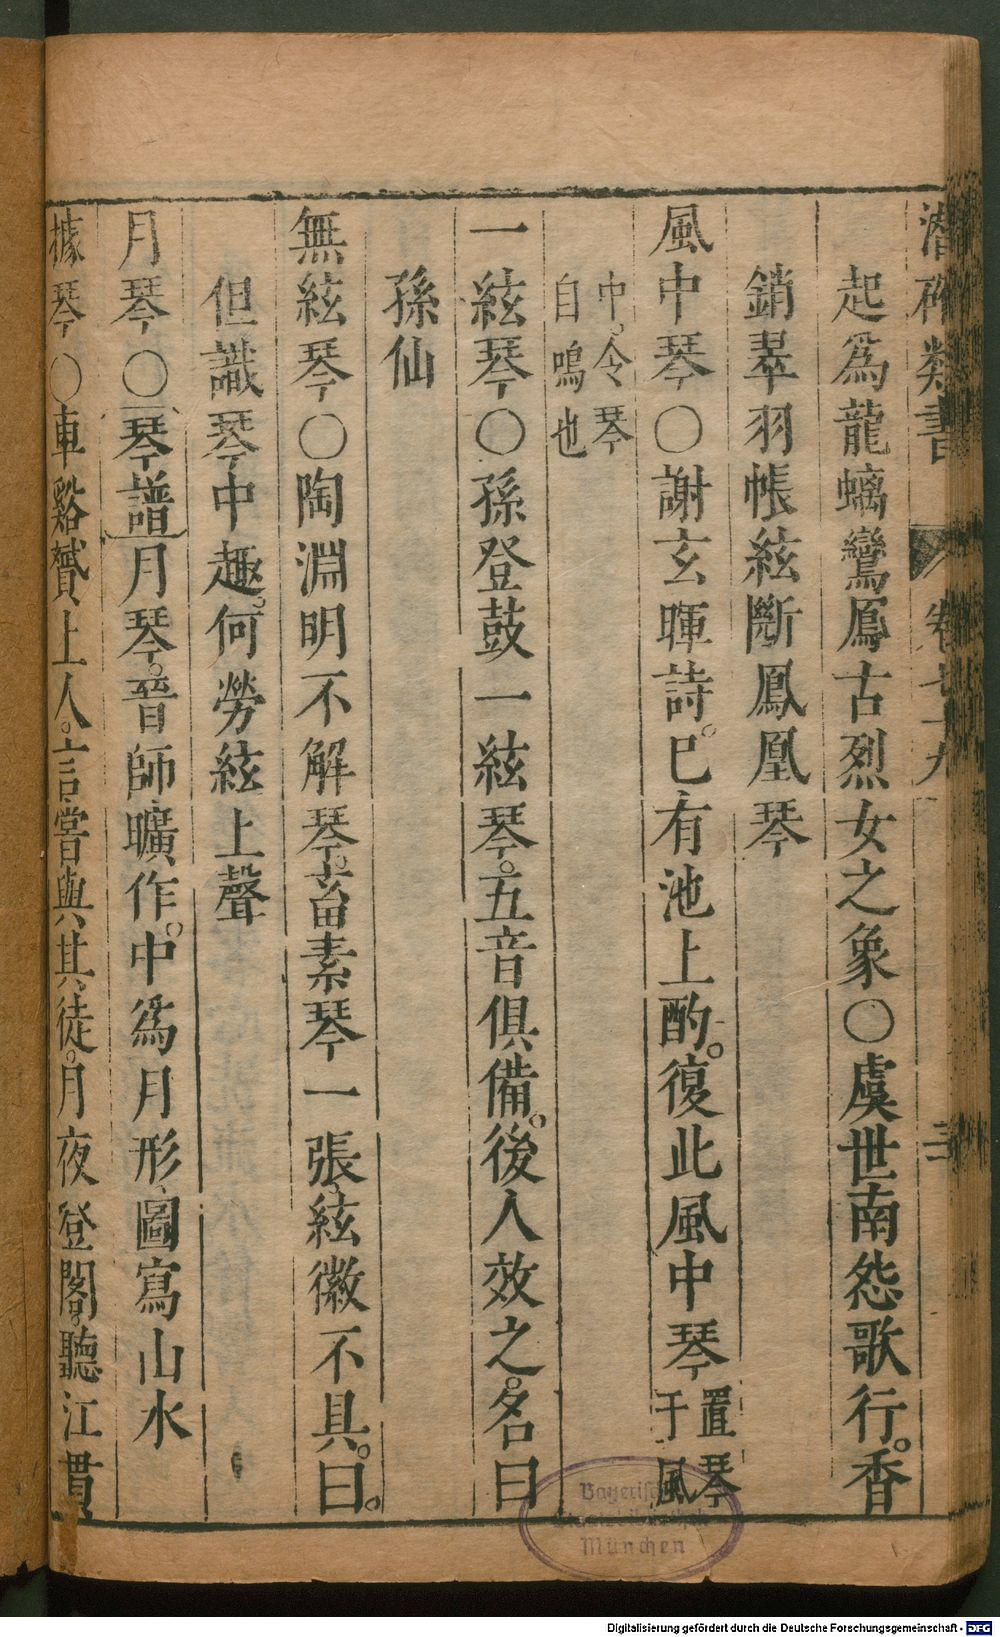 潛確類書 卷七十九 三
起爲龍螭鸞鳳古烈女之象○虞世南怨歌行。香
銷翠羽帳絃斷鳳凰琴
風中琴○謝玄暉詩。已有池上酌。復此風中琴置琴于風
中。令琴自鳴也
一絃琴○孫登鼓一絃琴。五音俱備。後人效之。名曰
孫仙
無絃琴○陶淵明不解琴。畜素琴一張、絃徽不具。曰。
但識琴中趣。何勞絃上聲
月琴○琴譜月琴。晉師曠作。中爲月形、圖寫山水
據琴○車谿贇上人。言嘗與其徒。月夜登閣。聽江貫
Bayerische
Staatsbibliothek
München
Digitalisierung gefördert durch die Deutsche Forschungsgemeinschaft - DFG